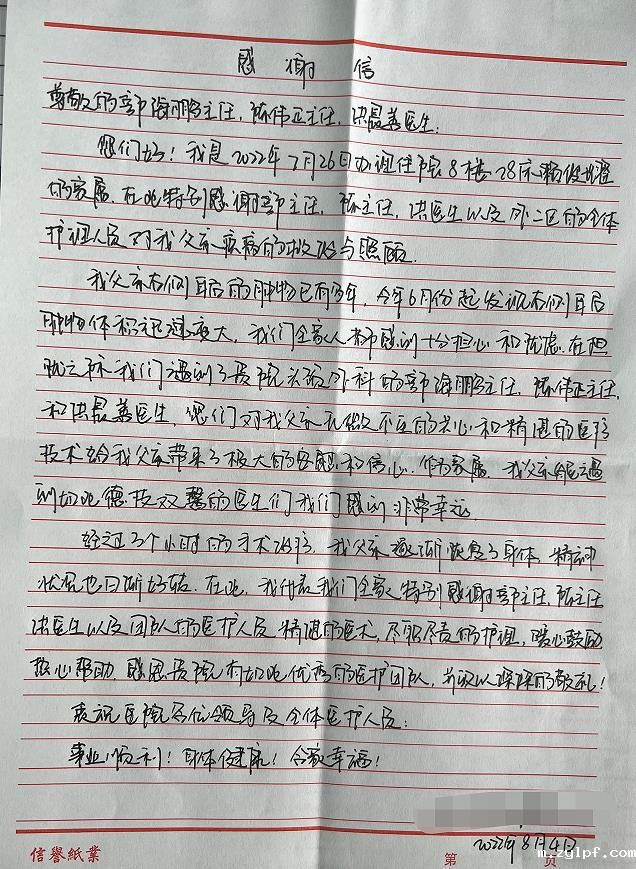 感谢信
尊敬的郭海鹏主任,陈伟正主任,洪晨善医生:
您们好!我是2022年7月26日办理住院8楼28床
的家属,在此特别感谢郭主任,陈主任,洪医生以及外二区的全体
护理人员对我父亲疾病的救治与照顾。
我父亲右侧耳后的肿物已有多年,今年6月份起发现右侧耳后
肿物体积已过度大,我们全家人都感到十分担心和忧虑,在担
忧之际我们遇到了贵院头颈外科的郭海鹏主任,陈伟正主任,
和洪晨善医生,您们对我父亲无微不至的关心和精湛的医疗
技术给我父亲带来了极大的安慰和信心,作为家属,我父亲能遇
到如此德技双馨的医生们我们感到非常幸运。
经过3个小时的手术治疗,我父亲逐渐恢复了身体,精神
状况也日渐好转,在此,我代表我们全家特别感谢郭主任,陈主任
洪医生以及团队的医护人员,精湛的医术,尽职尽责的护理,暖心鼓励
热心帮助,感恩贵院有如此优秀的医护团队,并致以深深的敬礼!
衷祝医院各位领导及全体医护人员:
事业顺利!身体健康!合家幸福!
2022年8月4日
信譽紙業 第 页
m.zglpf.com